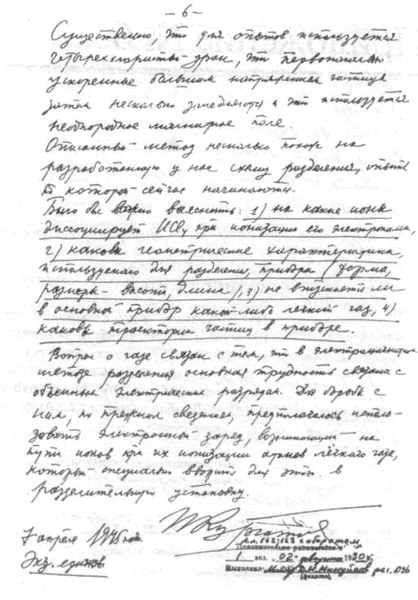 — 6 —
Существенно, что для опытов используется
четыреххлористый уран, что первоначально
ускоренные большим напряжением частицы
затем несколько замедляются и что используется
неоднородное магнитное поле.
Описанный метод несколько похож на
разработанную у нас схему разделения, опыты
с которой сейчас начинаются.
Было бы важно выяснить: 1) на какие ионы
диссоциирует UCl₄ при ионизации его электронами,
2) каковы геометрические характеристики,
используемого для разделения, прибора (форма,
размеры – высота, длина), 3) не впускается ли
в основной прибор какой-либо легкий газ, 4)
каковы траектории частиц в приборе.
Вопрос о газе связан с тем, что в электромагнитном
методе разделения основная трудность связана с
объемным электрическим разрядом. Для борьбы с
ним, по прежним сведениям, предполагалось исполь-
зовать электронный заряд, возникающий на
пути ионов при их ионизации атомов лёгкого газа,
который специально вводят для этого в
разделительную установку.
7 апреля 1945 год
Экз. единств.
1 экз. 02 августа